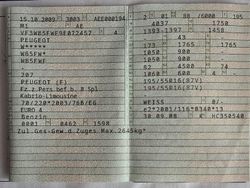 15.10.2009 3003 AEE000194
M1 AE
VF3WB5FWF9E072457 4
PEUGEOT
W*****
WB5FW*
WB5FWF
-
207
PEUGEOT (F)
Fz.z.Pers.bef.b. 8 Spl.
Kabrio-Limousine
70/220*2003/76B/EG
EURO 4
Benzin
0001 0462 1598
Zul.Ges-Gew.d.Zuges Max.2645kg*
2 01 88 /6000 195
4037 1750
1393-1397 1458
43 -
173 1765 1765
- - -
1060 980 -
1060 980 -
82 4500 74
1060 600 4 -
195/55R16(87V)
195/55R16(87V)
-
WEISS 0/-
e2*2001/116*0340*13
30.09.08 K HC350540